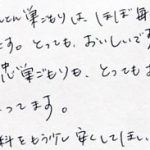 とん巣ごもりは、ほぼ毎
です。とっても、おいしいで
巣ごもりも、とっても
ってます。
料をもう少し安くしてほしい